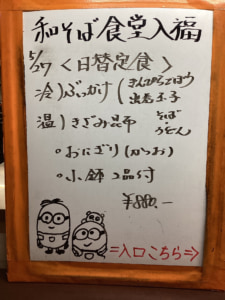 和そば食堂入福
5/27 〈日替定食〉
冷）ぶっかけ（きんぴらごぼう
出巻玉子
温）きざみ昆布 そば
うどん
○おにぎり（かつお）
○小鉢2品付
¥880.-
⇒入口こちら⇒